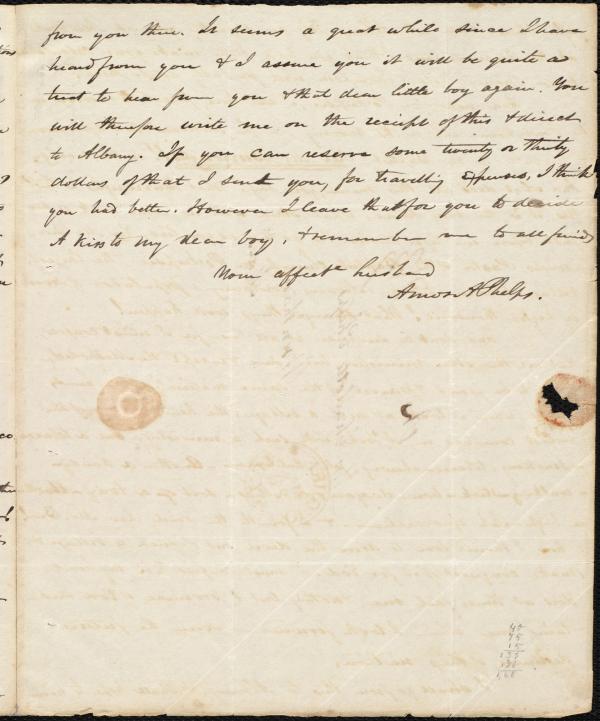 from you then. It seems a great while since I have
heard from you & I assure you it will be quite a
treat to hear from you & that dear little boy again. You
will therefore write me on the receipt of this & direct
to Albany. If you can reserve some twenty or thirty
dollars of that I sent you, for travelling expenses, I think
you had better. However I leave that for you to decide
A kiss to my dear boy, & remember me to all friends
Your affecte husband
Amos A Phelps.
45
75
15
135